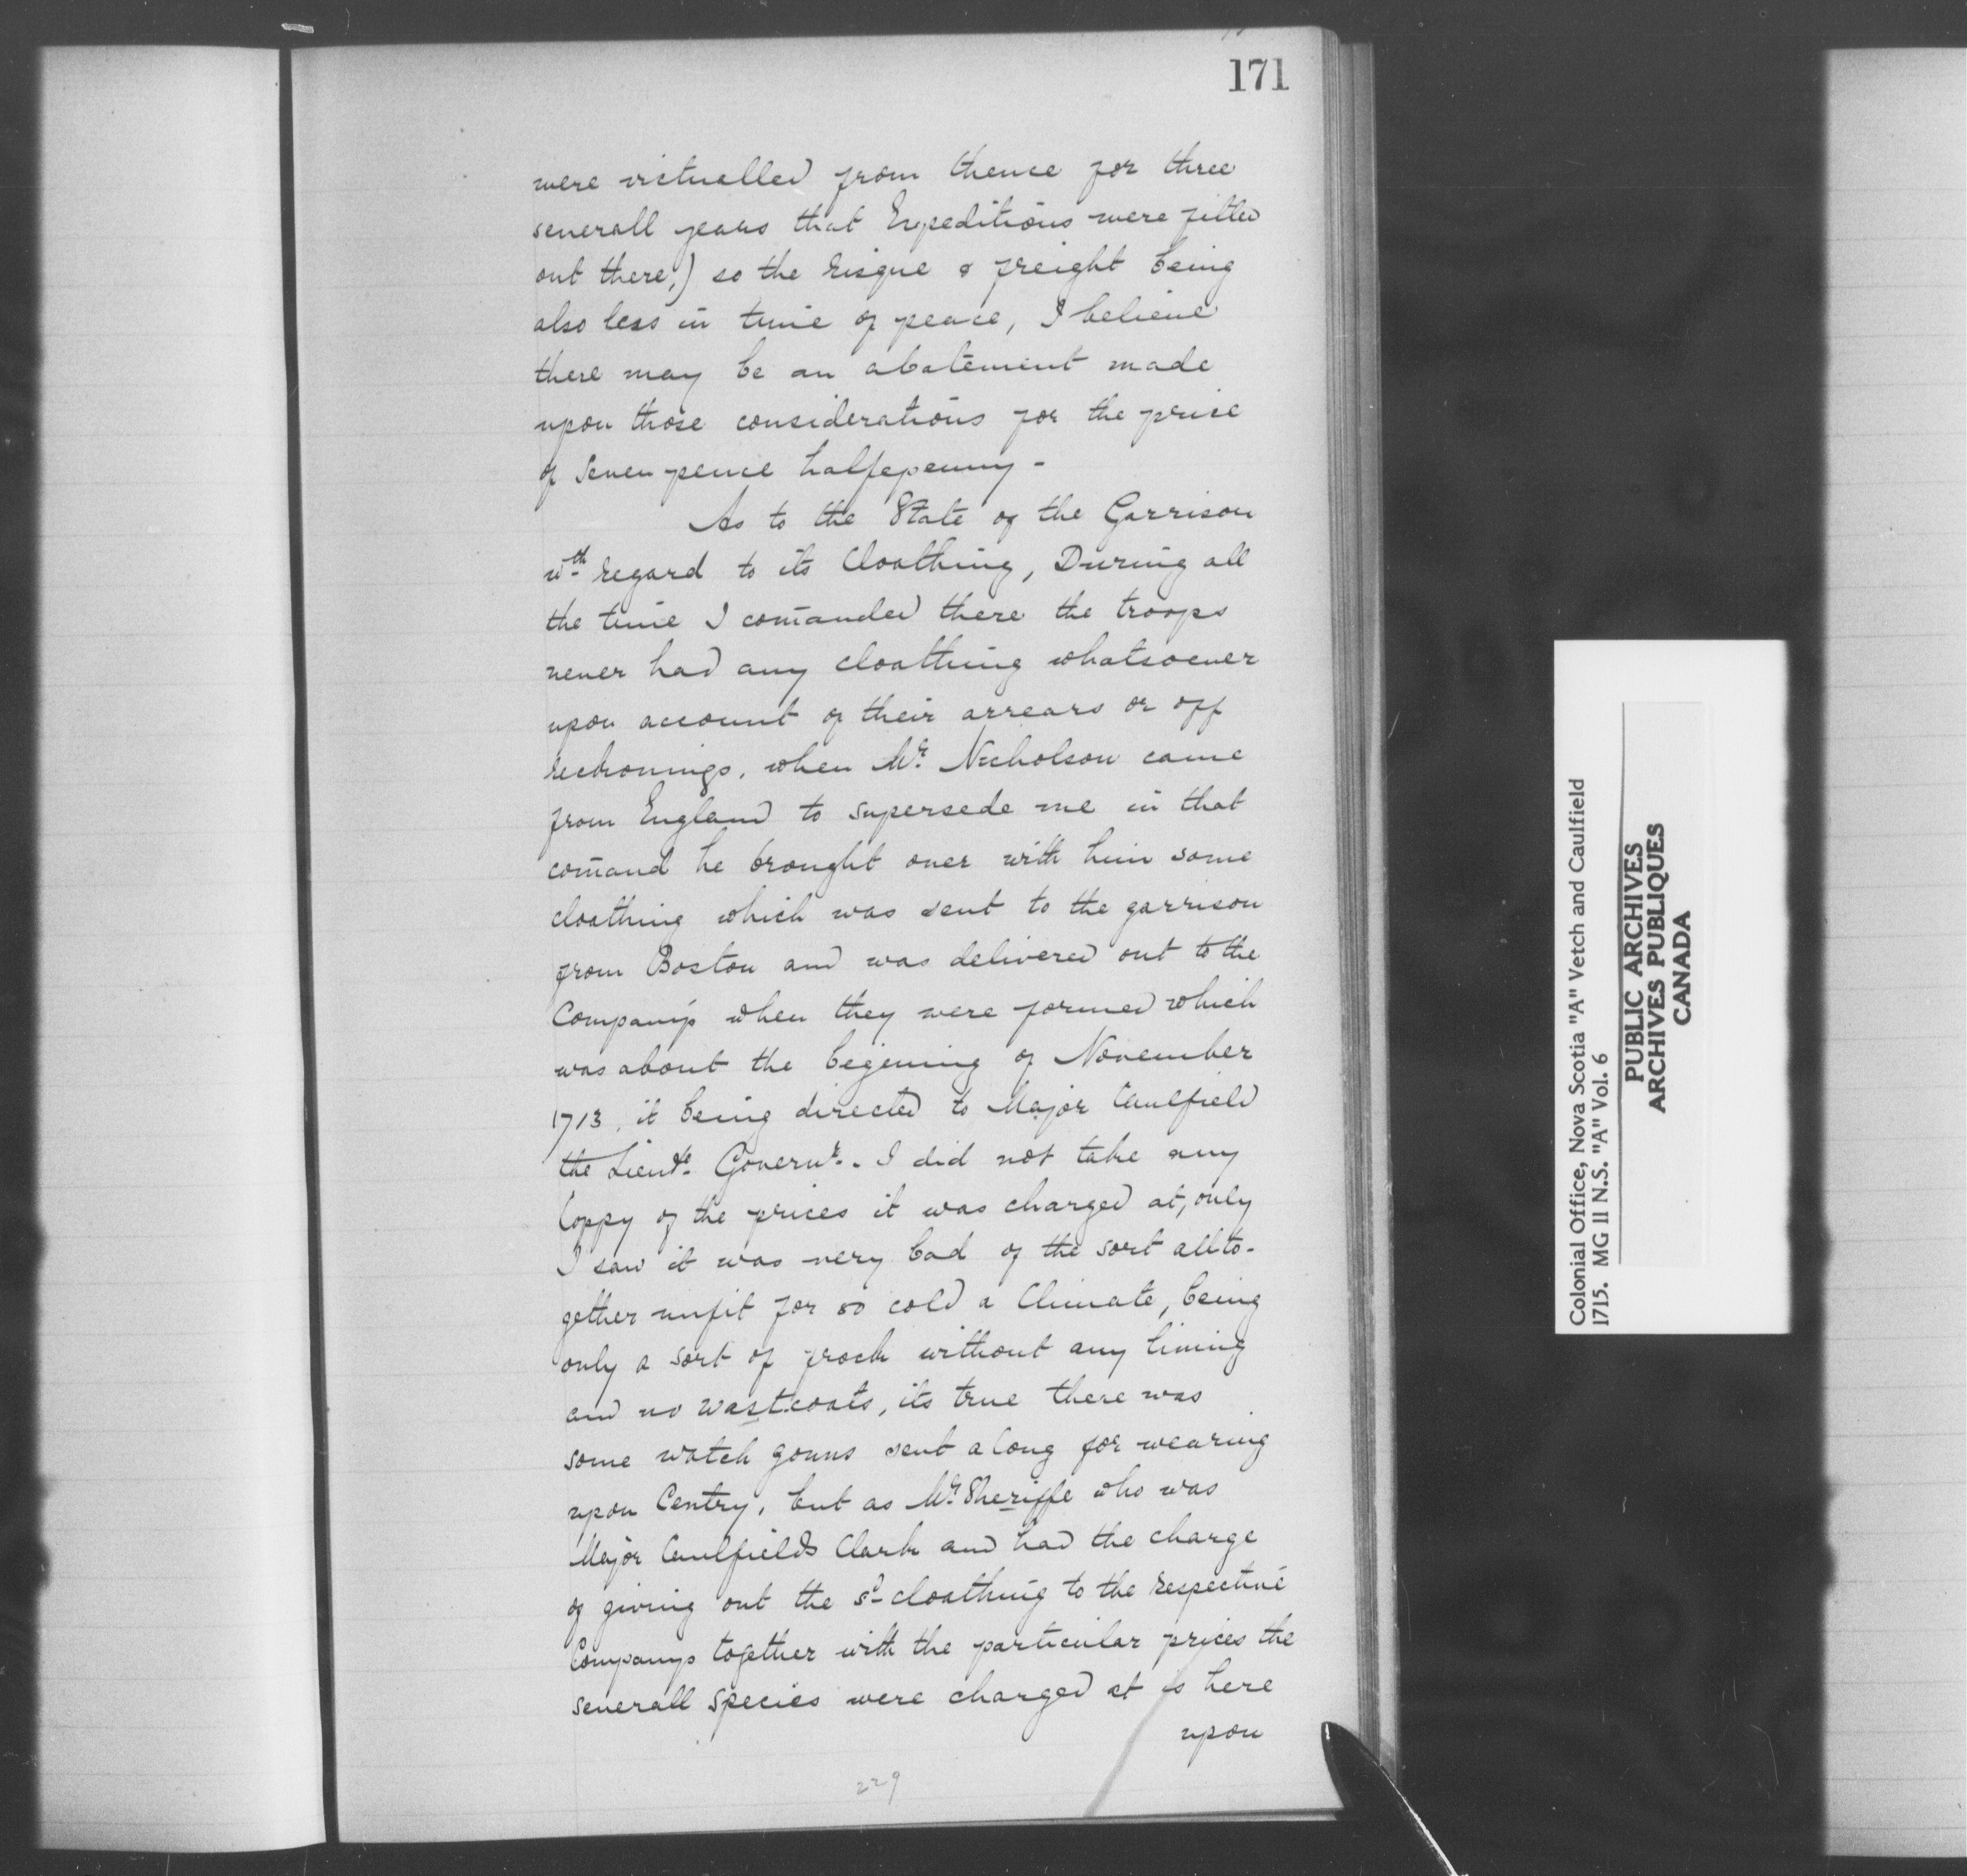 171
were victualled from thence for three
severall years that Expeditions were fitted
out there,) so the risque & freight being
also less in time of peace, I believe
there may be an abatement made
upon those considerations for the price
of seven pence halfepenny -
As to the State of the Garrison
wth regard to its Cloathing, During all
the time I com̄anded there the troops
never had any cloathing whatsoever
upon account of their arrears or off
reckonings, when Mr. Nicholson came
from England to supersede me in that
com̄and he brought over with him some
cloathing which was sent to the garrison
from Boston and was delivered out to the
Companys when they were formed which
was about the begening of November
1713, it being directed to Major Caulfield
the Lieut. Governr. I did not take any
Coppy of the prices it was charged at, only
I saw it was very bad of the sort allto-
gether unfit for so cold a Climate, being
only a sort of frock without any lining
and no wastcoats, its true there was
some watch gouns sent along for wearing
upon Centry, but as Mr. Sheriffe who was
Major Caulfields Clark and had the charge
of giving out the sd cloathing to the respective
Companys together with the particular prices the
severall species were charged at is here
upon
229
Colonial Office, Nova Scotia "A" Vetch and Caulfield
1715. MG 11 N.S. "A" Vol. 6
PUBLIC ARCHIVES
ARCHIVES PUBLIQUES
CANADA